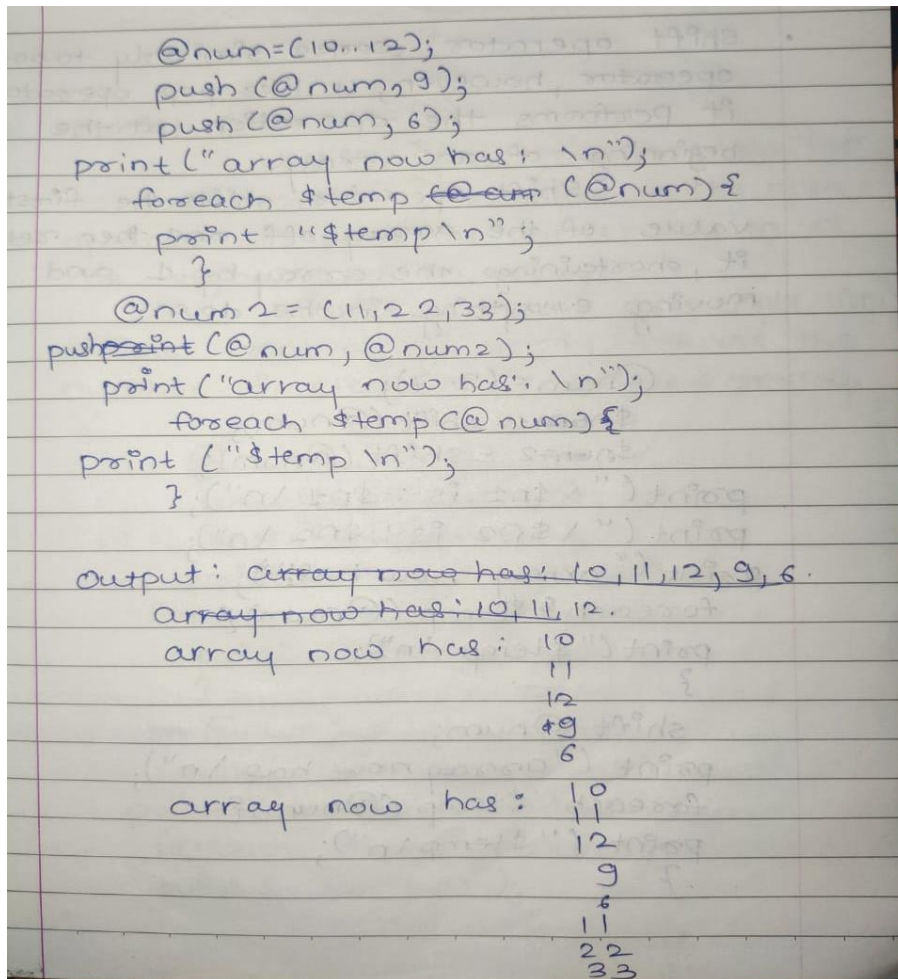 @num=(10..12);
push (@num, 9);
push (@num, 6);
print ("array now has: \n");
foreach $temp (@num) {
print "$temp\n";
}
@num2 = (11,22,33);
push (@num, @num2);
print ("array now has: \n");
foreach $temp (@num) {
print ("$temp \n");
}
Output: array now has: 10, 11, 12, 9, 6.
array now has: 10, 11, 12.
array now has: 10
11
12
9
6
array now has: 10
11
12
9
6
11
22
33